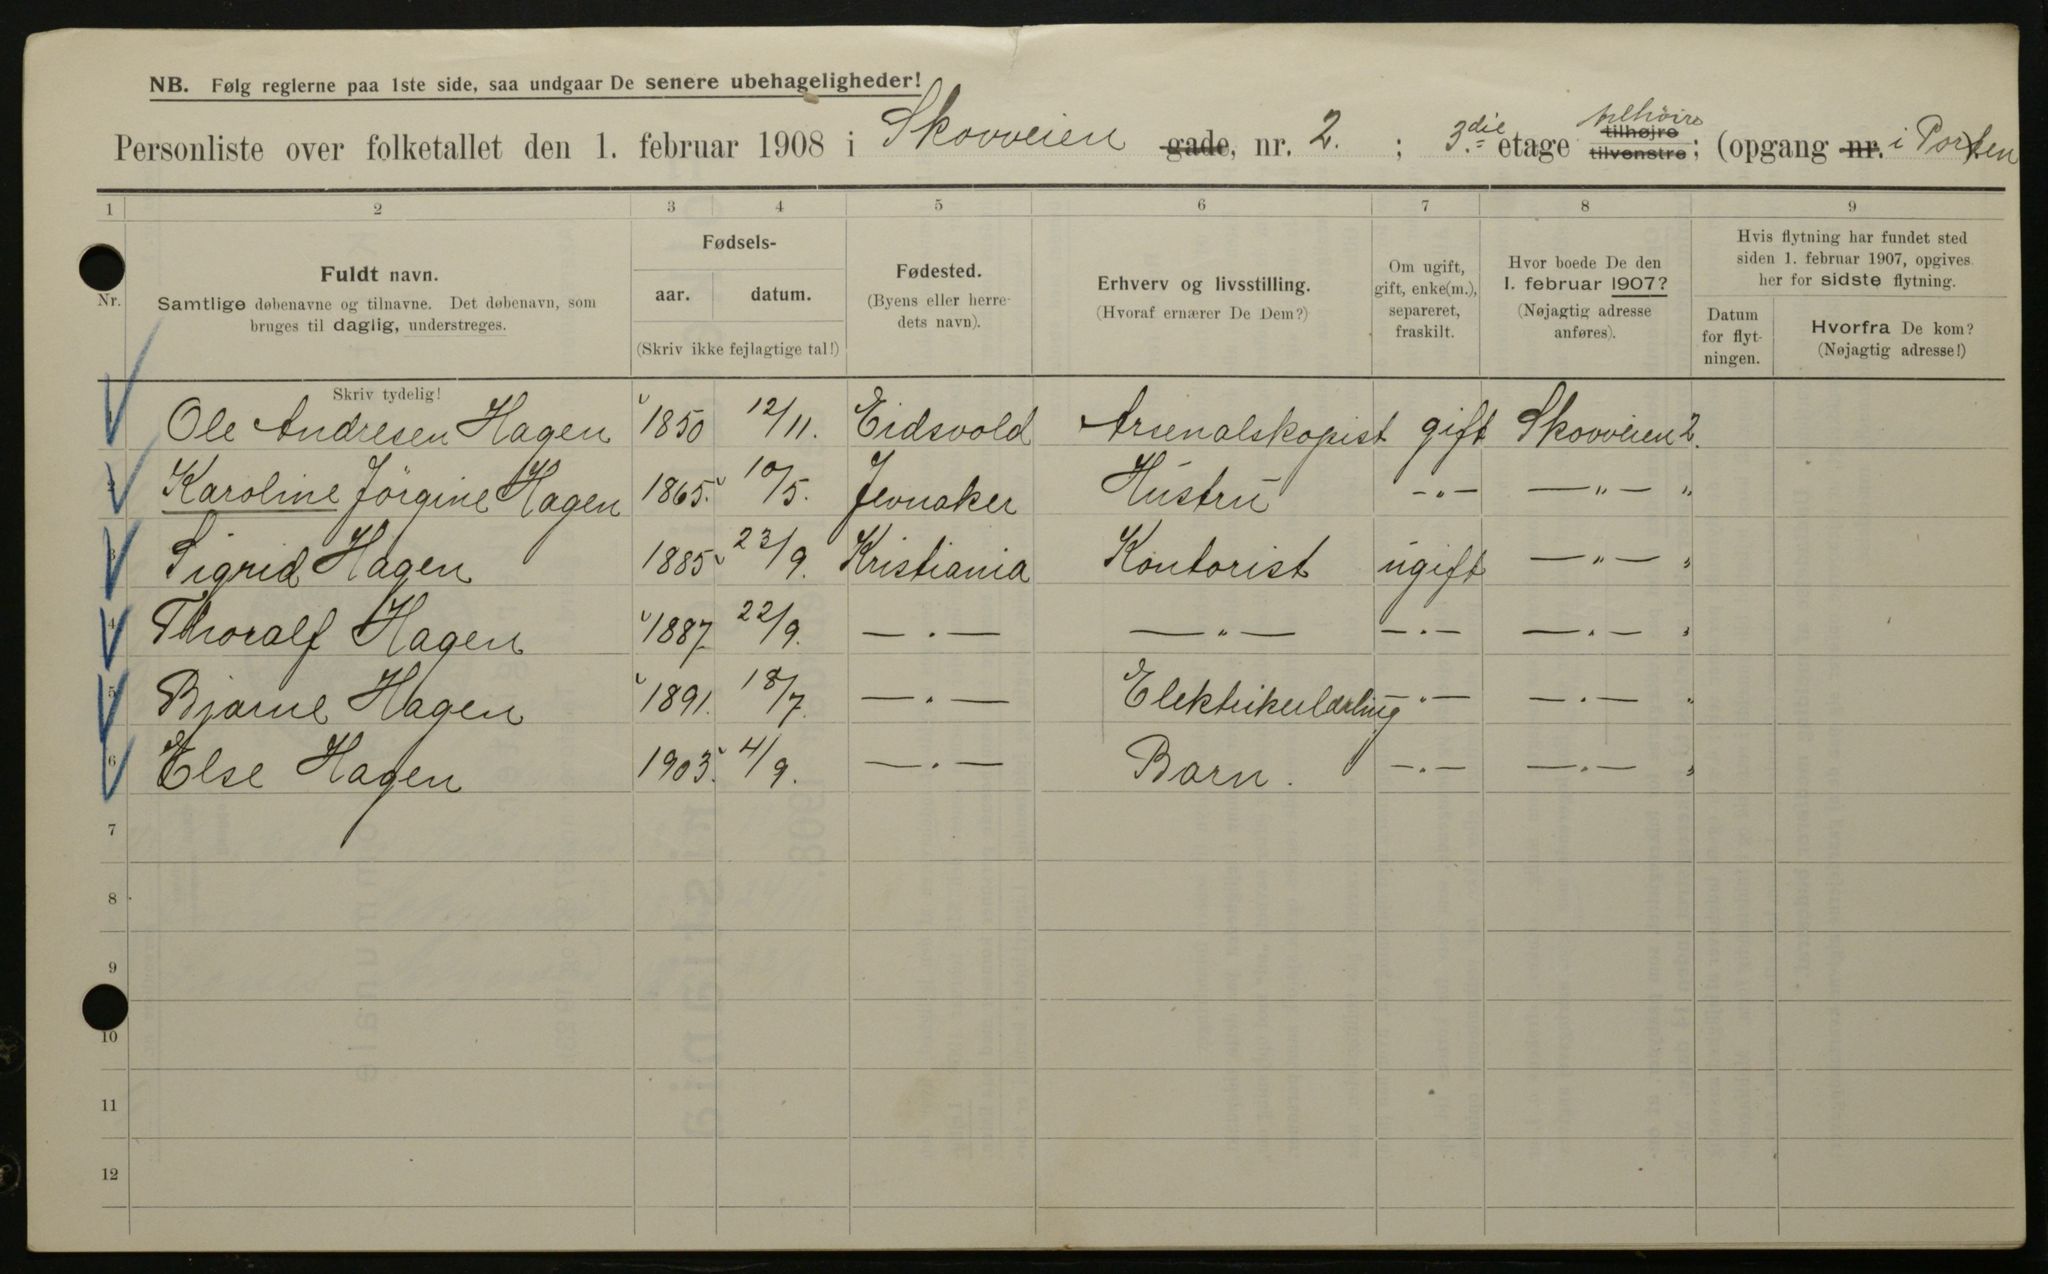 NB. Følg reglerne paa 1ste side, saa undgaar De senere ubehageligheder!
Personliste over folketallet den 1. februar 1908 i Skovveien gade, nr. 2. ; 3.die etage tilhøire tilhøjre tilvenstre; (opgang nr. i Porten
1 2 3 4 5 6 7 8 9
Nr.
Fuldt navn.
Samtlige døbenavne og tilnavne. Det døbenavn, som
bruges til daglig, understreges.
Fødsels-
aar. datum.
(Skriv ikke fejlagtige tal!)
Fødested.
(Byens eller herre-
dets navn).
Erhverv og livsstilling.
(Hvoraf ernærer De Dem?)
Om ugift,
gift, enke(m.),
separeret,
fraskilt.
Hvor boede De den
1. februar 1907?
(Nøjagtig adresse
anføres).
Hvis flytning har fundet sted
siden 1. februar 1907, opgives
her for sidste flytning.
Datum
for flyt-
ningen.
Hvorfra De kom?
(Nøjagtig adresse!)
Skriv tydelig!
1 Ole Andresen Hagen 1850 12/11. Eidsvold Arsenalskopist gift Skovveien 2.
2 Karoline Jörgine Hagen 1865. 10/5. Jevnaker Hustru -"- -"- "
3 Sigrid Hagen 1885 23/9. Kristiania Kontorist ugift -"- "
4 Thoralf Hagen 1887 22/9. -"- -"- -"- -"- "
5 Bjarne Hagen 1891. 18/7. -"- Elektrikerlærling -"- -"- "
6 Else Hagen 1903. 4/9. -"- Barn. -"- -"- "
7
8
9
10
11
12